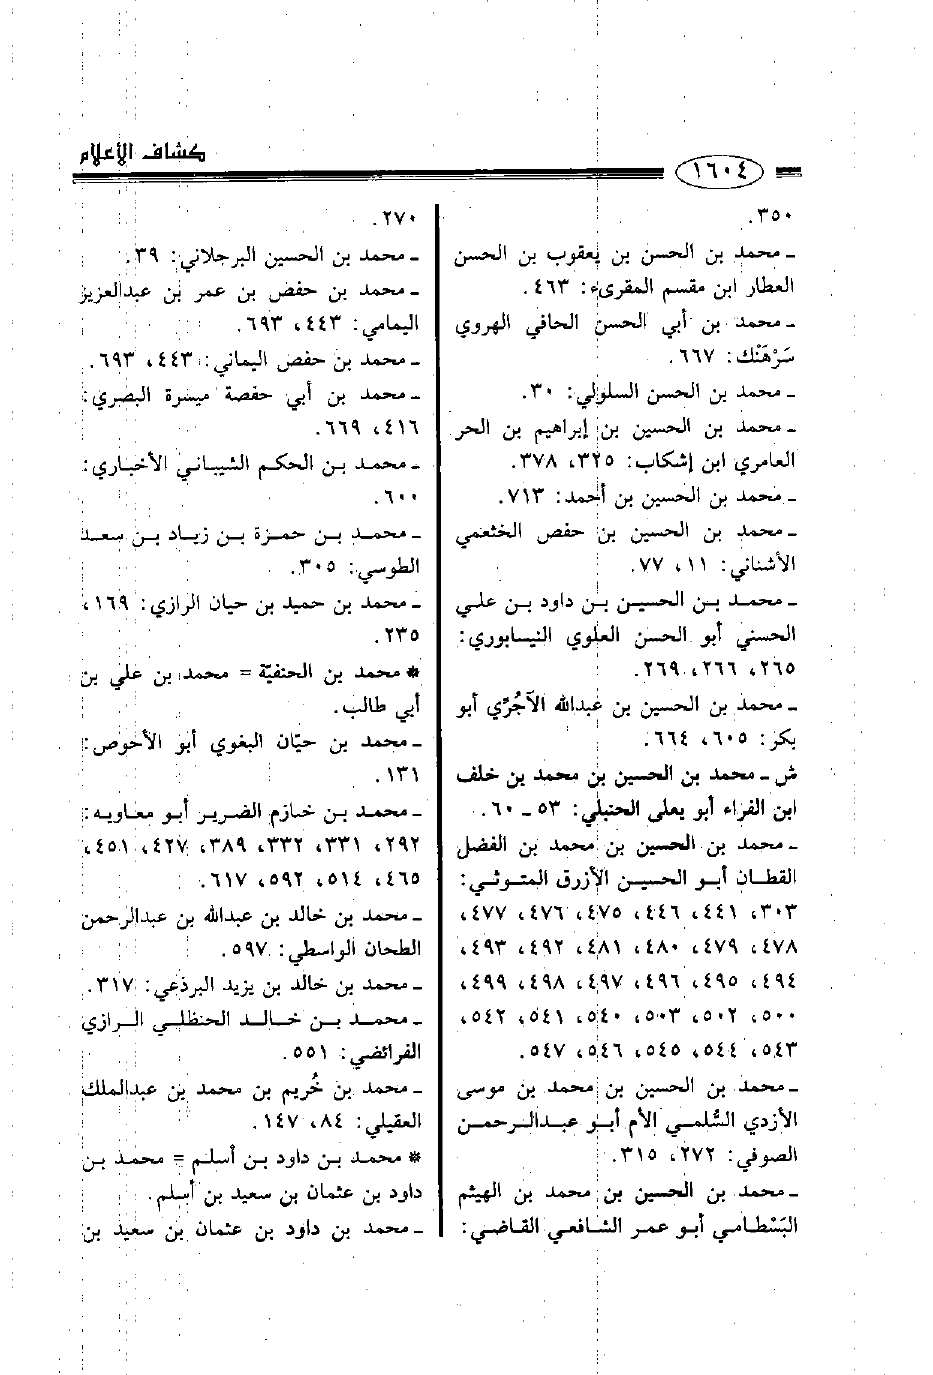 ١٦٠٤
كشاف الأعلام
٣٥٠.
ـ محمد بن الحسن بن يعقوب بن الحسن
العطار ابن مقسم المقرىء: ٤٦٣.
ـ محمد بن أبي الحسن الحافي الهروي
سَرْهَنْك: ٦٦٧.
ـ محمد بن الحسن السلولي: ٣٠.
ـ محمد بن الحسين بن إبراهيم بن الحر
العامري ابن إشكاب: ٣٢٥، ٣٧٨.
ـ محمد بن الحسين بن أحمد: ٧١٣.
ـ محمد بن الحسين بن حفص الخثعمي
الأشناني: ١١، ٧٧.
ـ محمد بن الحسين بن داود بن علي
الحسني أبو الحسن العلوي النيسابوري:
٢٦٥، ٢٦٦، ٢٦٩.
ـ محمد بن الحسين بن عبدالله الآجُرِّي أبو
بكر: ٦٠٥، ٦٦٤.
ش ـ محمد بن الحسين بن محمد بن خلف
ابن الفراء أبو يعلى الحنبلي: ٥٣ ـ ٦٠.
ـ محمد بن الحسين بن محمد بن الفضل
القطان أبو الحسين الأزرق المتوثي:
٣٠٣، ٤٤١، ٤٤٦، ٤٧٥، ٤٧٦، ٤٧٧،
٤٧٨، ٤٧٩، ٤٨٠، ٤٨١، ٤٩٢، ٤٩٣،
٤٩٤، ٤٩٥، ٤٩٦، ٤٩٧، ٤٩٨، ٤٩٩،
٥٠٠، ٥٠٢، ٥٠٣، ٥٤٠، ٥٤١، ٥٤٢،
٥٤٣، ٥٤٤، ٥٤٥، ٥٤٦، ٥٤٧.
ـ محمد بن الحسين بن محمد بن موسى
الأزدي السُّلمي الأم أبو عبدالرحمن
الصوفي: ٢٧٢، ٣١٥.
ـ محمد بن الحسين بن محمد بن الهيثم
البَسْطامي أبو عمر الشافعي القاضي:
٢٧٠.
ـ محمد بن الحسين البرجلاني: ٣٩.
ـ محمد بن حفص بن عمر بن عبدالعزيز
اليمامي: ٤٤٣، ٦٩٣.
ـ محمد بن حفص اليماني: ٤٤٣، ٦٩٣.
ـ محمد بن أبي حفصة ميسرة البصري:
٤١٦، ٦٦٩.
ـ محمد بن الحكم الشيباني الأخباري:
٦٠٠.
ـ محمد بن حمزة بن زياد بن سعد
الطوسي: ٣٠٥.
ـ محمد بن حميد بن حيان الرازي: ١٦٩،
٢٣٥.
* محمد بن الحنفيّة = محمد بن علي بن
أبي طالب.
ـ محمد بن حيّان البغوي أبو الأحوص:
١٣١.
ـ محمد بن خازم الضرير أبو معاوية:
٢٩٢، ٣٣١، ٣٣٢، ٣٨٩، ٤٢٧، ٤٥١،
٤٦٥، ٥١٤، ٥٩٢، ٦١٧.
ـ محمد بن خالد بن عبدالله بن عبدالرحمن
الطحان الواسطي: ٥٩٧.
ـ محمد بن خالد بن يزيد البرذعي: ٣١٧.
ـ محمد بن خالد الحنظلي الرازي
الفرائضي: ٥٥١.
ـ محمد بن خُريم بن محمد بن عبدالملك
العقيلي: ٨٤، ١٤٧.
* محمد بن داود بن أسلم = محمد بن
داود بن عثمان بن سعيد بن أسلم.
ـ محمد بن داود بن عثمان بن سعيد بن